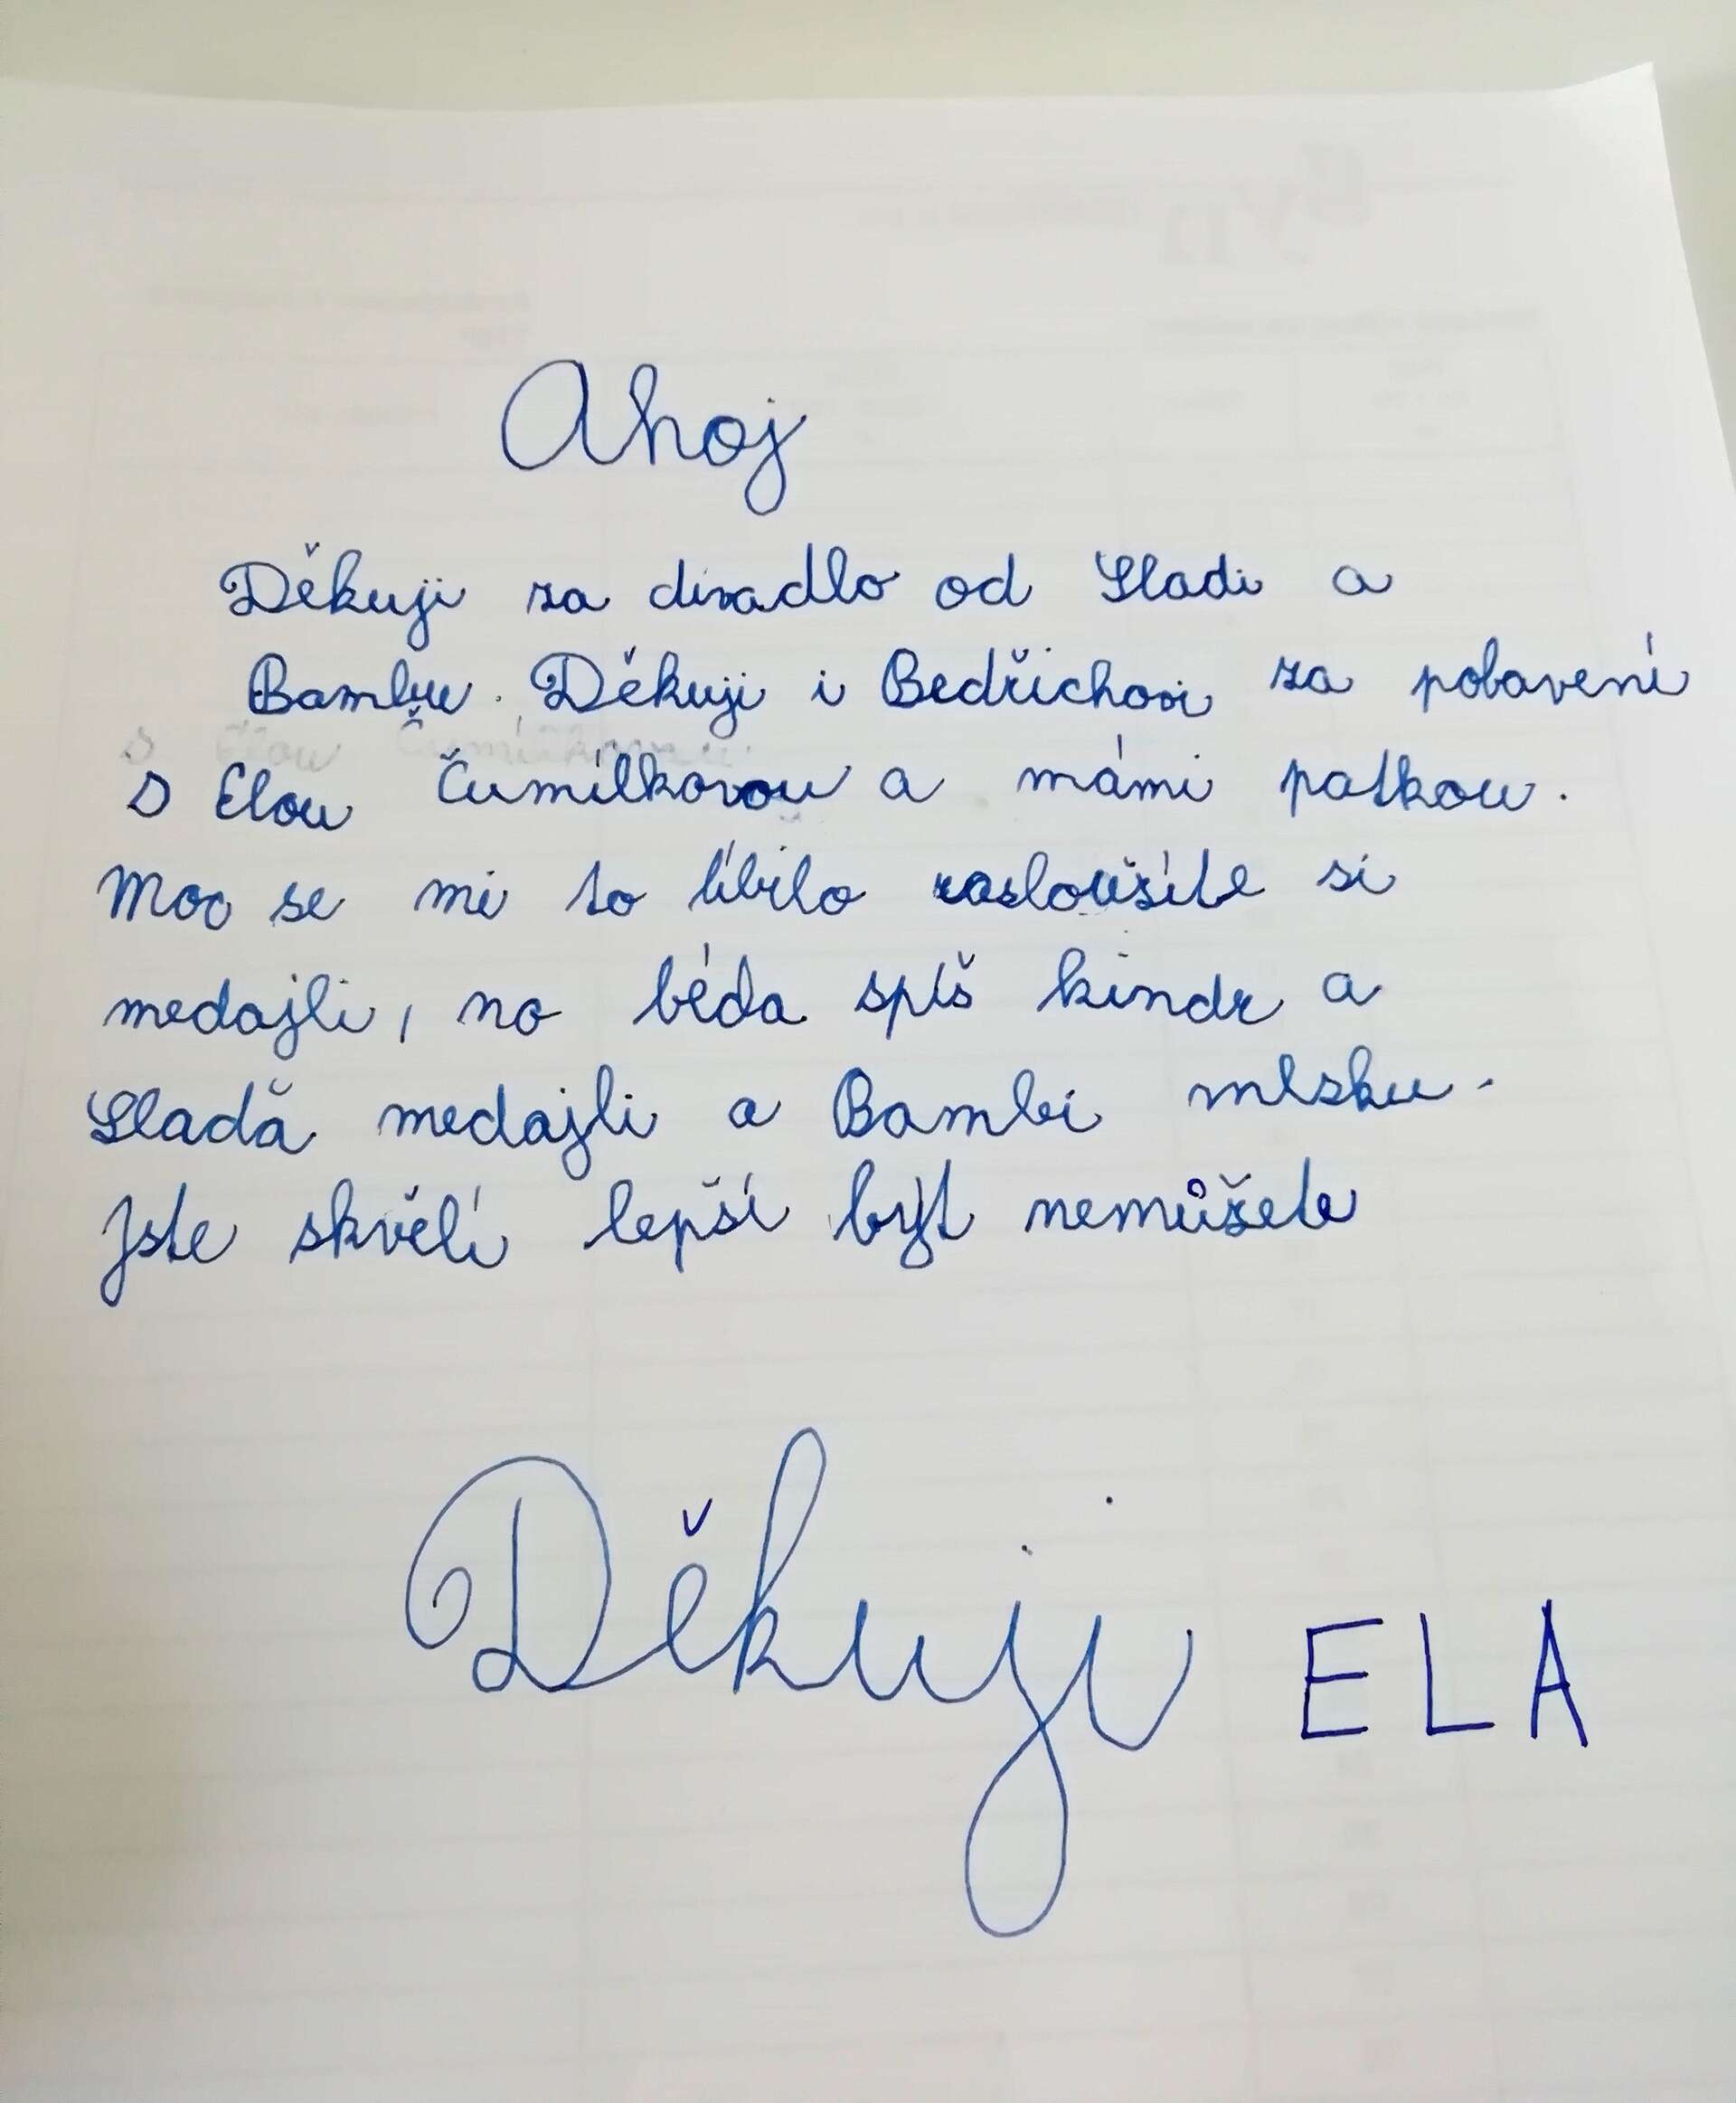 Ahoj
Děkuji za divadlo od Sladi a
Bambu. Děkuji i Bedřichovi za pobavení
s Elou Čumílkovou a mámi patkou.
Moc se mi to líbilo zasloušíte si
medajli, no béda spíš kindr a
Sladă medajli a Bambi mlsku.
Jste skvělí lepší být nemůšete
Děkuji ELA